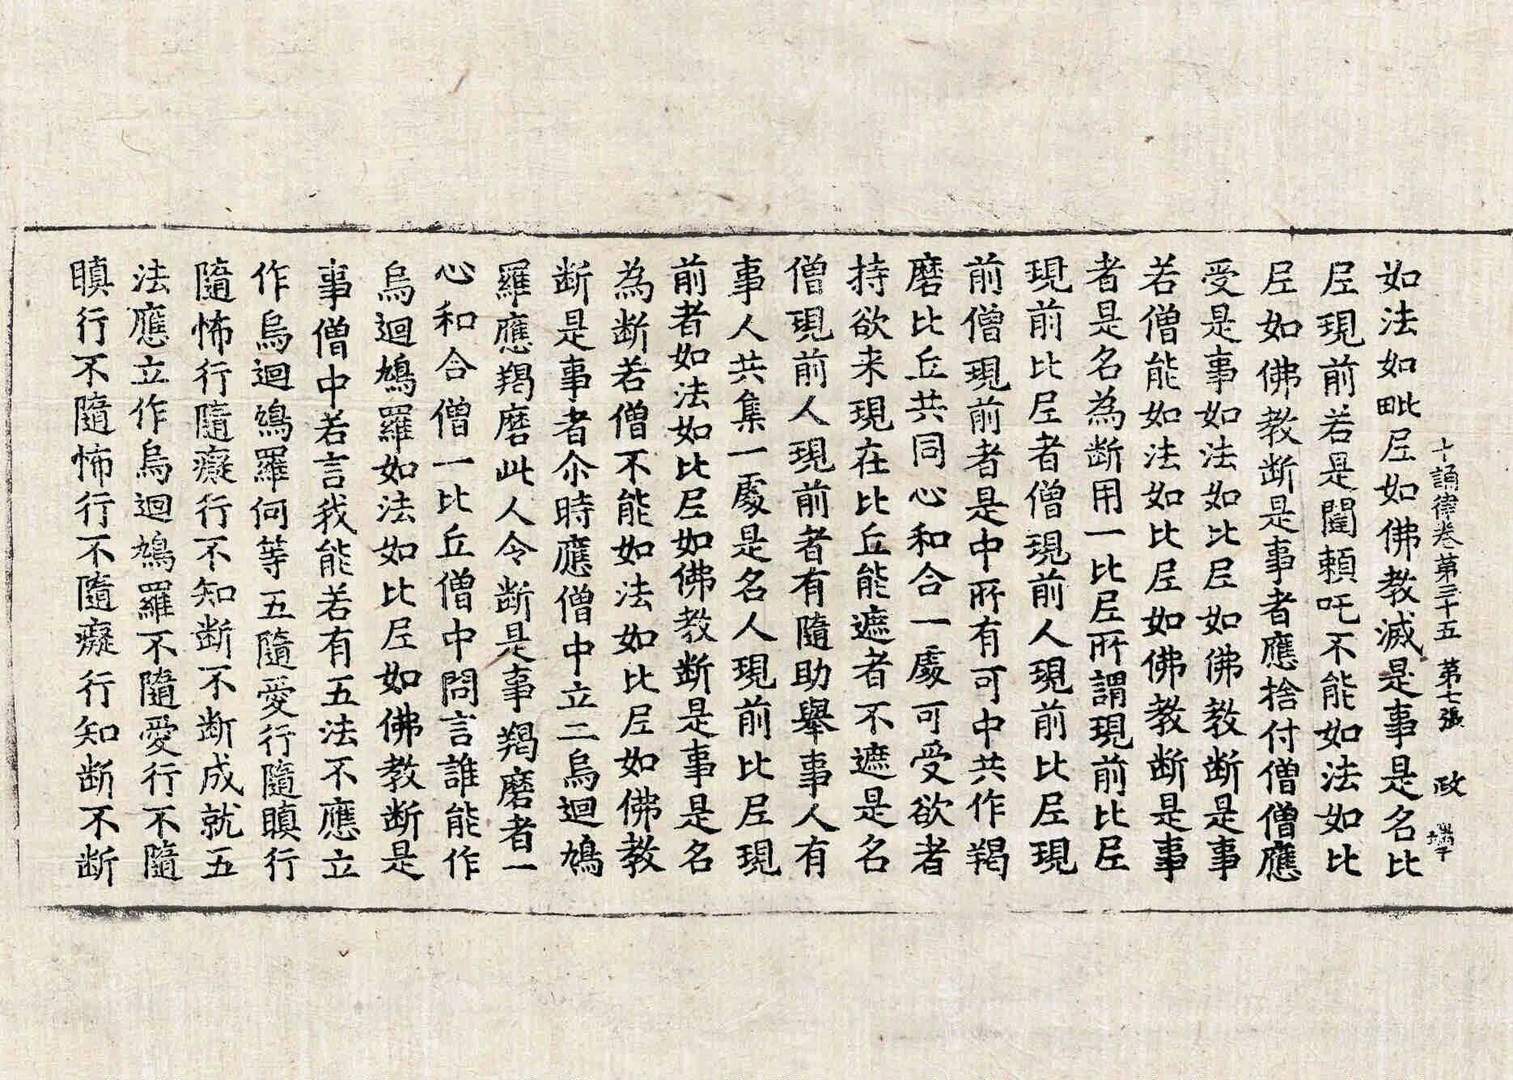 十誦律卷第三十五 第七張 政
如法如毗尼如佛教滅是事是名比
尼現前若是闥頼吒不能如法如比
尼如佛教断是事者應捨付僧僧應
受是事如法如比尼如佛教断是事
若僧能如法如比尼如佛教断是事
者是名為断用一比尼所謂現前比尼
現前比尼者僧現前人現前比尼現
前僧現前者是中所有可中共作羯
磨比丘共同心和合一處可受欲者
持欲来現在比丘能遮者不遮是名
僧現前人現前者有隨助舉事人有
事人共集一處是名人現前比尼現
前者如法如比尼如佛教断是事是名
為断若僧不能如法如比尼如佛教
断是事者尒時應僧中立二烏迴鳩
羅應羯磨此人令断是事羯磨者一
心和合僧一比丘僧中問言誰能作
烏迴鳩羅如法如比尼如佛教断是
事僧中若言我能若有五法不應立
作烏迴鳩羅何等五隨愛行隨瞋行
隨怖行隨癡行不知断不断成就五
法應立作烏迴鳩羅不隨愛行不隨
瞋行不隨怖行不隨癡行知断不断